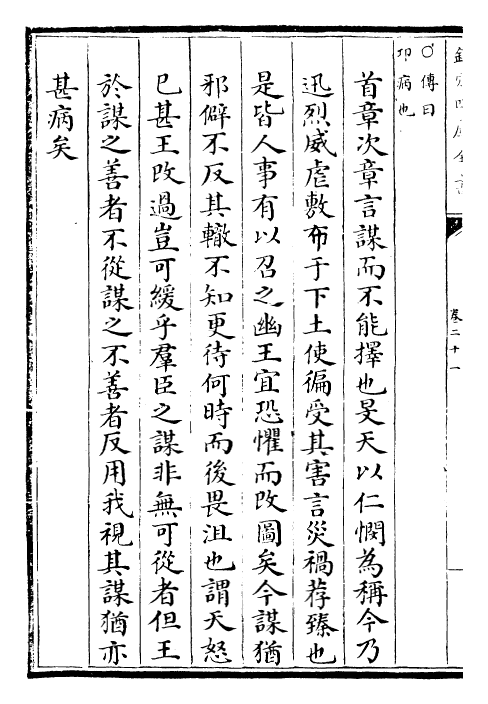 ○傳曰
卭病也
首章次章言謀而不能擇也旻天以仁憫為稱今乃
迅烈威虐敷布于下土使徧受其害言災禍荐臻也
是皆人事有以召之幽王宜恐懼而改圖矣今謀猶
邪僻不反其轍不知更待何時而後畏沮也謂天怒
已甚王改過豈可緩乎羣臣之謀非無可從者但王
於謀之善者不從謀之不善者反用我視其謀猶亦
甚病矣
卷二十一